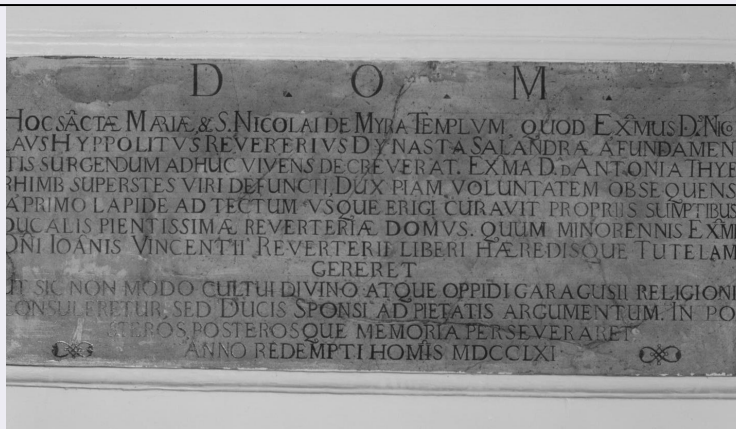 D . O . M .
HOC SÃCTÆ MARIÆ & S. NICOLAI DE MYRA TEMPLVM QUOD EXMUS D. NICO
LAVS HYPPOLITVS REVERTERIVS DYNASTA SALANDRÆ A FUNDAMEN
TIS SURGENDUM ADHUC VIVENS DECREVERAT. EXMA D. D. ANTONIA THYE
RHIMB SUPERSTES VIRI DEFUNCTI, DUX PIAM VOLUNTATEM OBSEQUENS
A PRIMO LAPIDE AD TECTUM VSQUE ERIGI CURAVIT PROPRIIS SUMPTIBUS
DUCALIS PIENTISSIMÆ REVERTERIÆ DOMVS. QUUM MINORENNIS EXMI
DNI IOÃNIS VINCENTII REVERTERII LIBERI HÆREDISQUE TUTELAM
GERERET
UT SIC NON MODO CULTUI DIVINO ATQUE OPPIDI GARAGUSII RELIGIONI
CONSULERETUR, SED DUCIS SPONSI AD PIETATIS ARGUMENTUM. IN PO
STEROS POSTEROSQUE MEMORIA PERSEVERARET
ANNO REDEMPTI HOMIS MDCCLXI